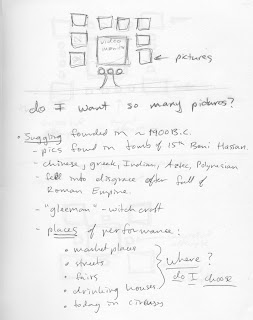 video
pictures
do I want so many pictures?
• Juggling founded in ~ 1900 B.C.
- pics found in tomb of 15th Beni Hassan.
- chinese, greek, Indian, Aztec, Polynesian
- fell into disgrace after fall of
Roman Empire.
- "gleeman" - witchcraft
- places of performance:
• market places
• streets
• fairs
• drinking houses
• today in circuses
where?
do I choose